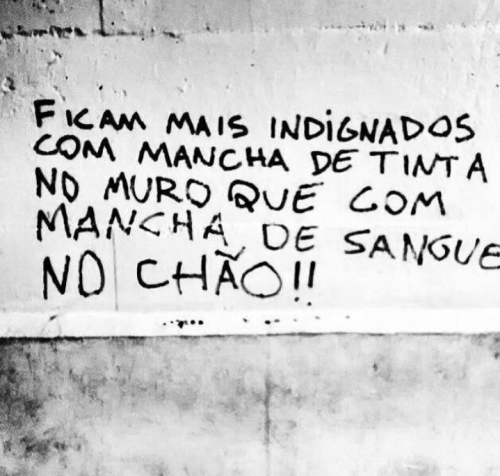 FICAM MAIS INDIGNADOS
COM MANCHA DE TINTA
NO MURO QUE COM
MANCHA DE SANGUE
NO CHÃO!!